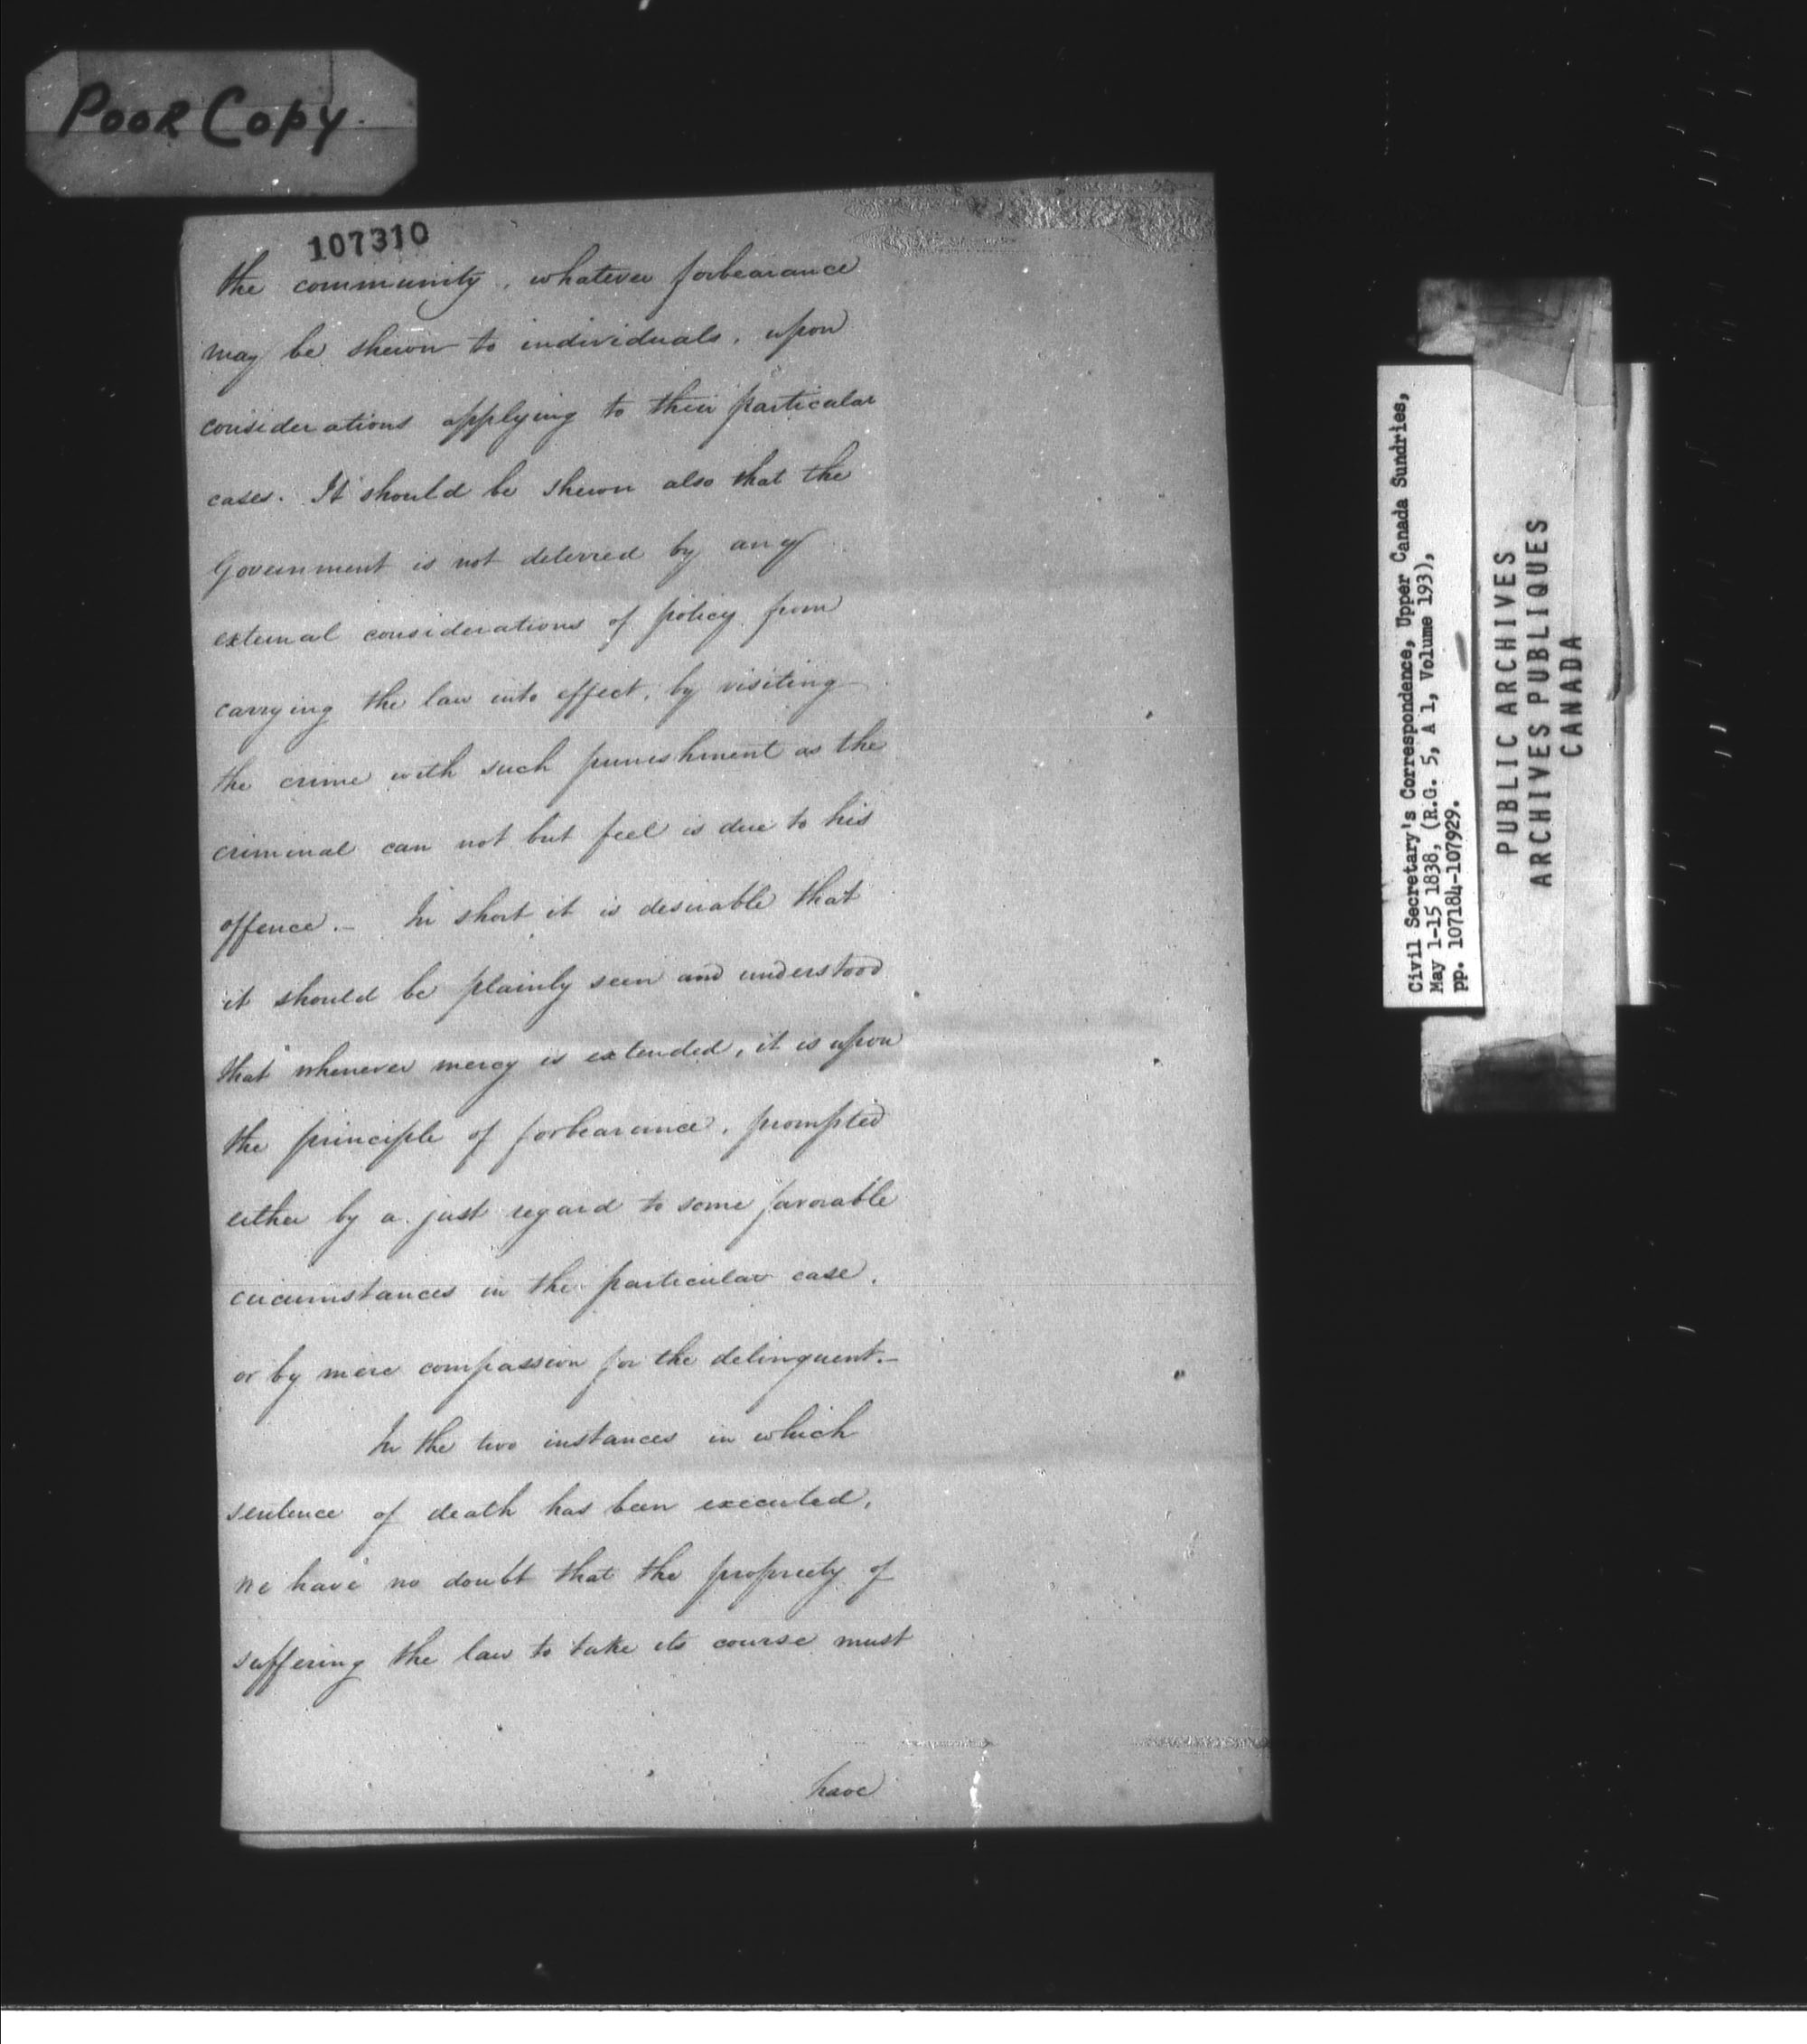 Poor Copy.
107310
the community, whatever forbearance
may be shewn to individuals, upon
considerations applying to their particular
cases. It should be shewn also that the
Government is not deterred by any
external considerations of policy from
carrying the law into effect, by visiting
the crime with such punishment as the
criminal can not but feel is due to his
offence.- In short it is desirable that
it should be plainly seen and understood
that whenever mercy is extended, it is upon
the principle of forbearance, prompted
either by a just regard to some favorable
circumstances in the particular case,
or by mere compassion for the delinquent.-
In the two instances in which
sentence of death has been executed,
we have no doubt that the propriety of
suffering the law to take its course must
have
Civil Secretary's Correspondence, Upper Canada Sundries,
May 1-15 1838, (R.G. 5, A 1, Volume 193),
pp. 107184-107929.
PUBLIC ARCHIVES
ARCHIVES PUBLIQUES
CANADA